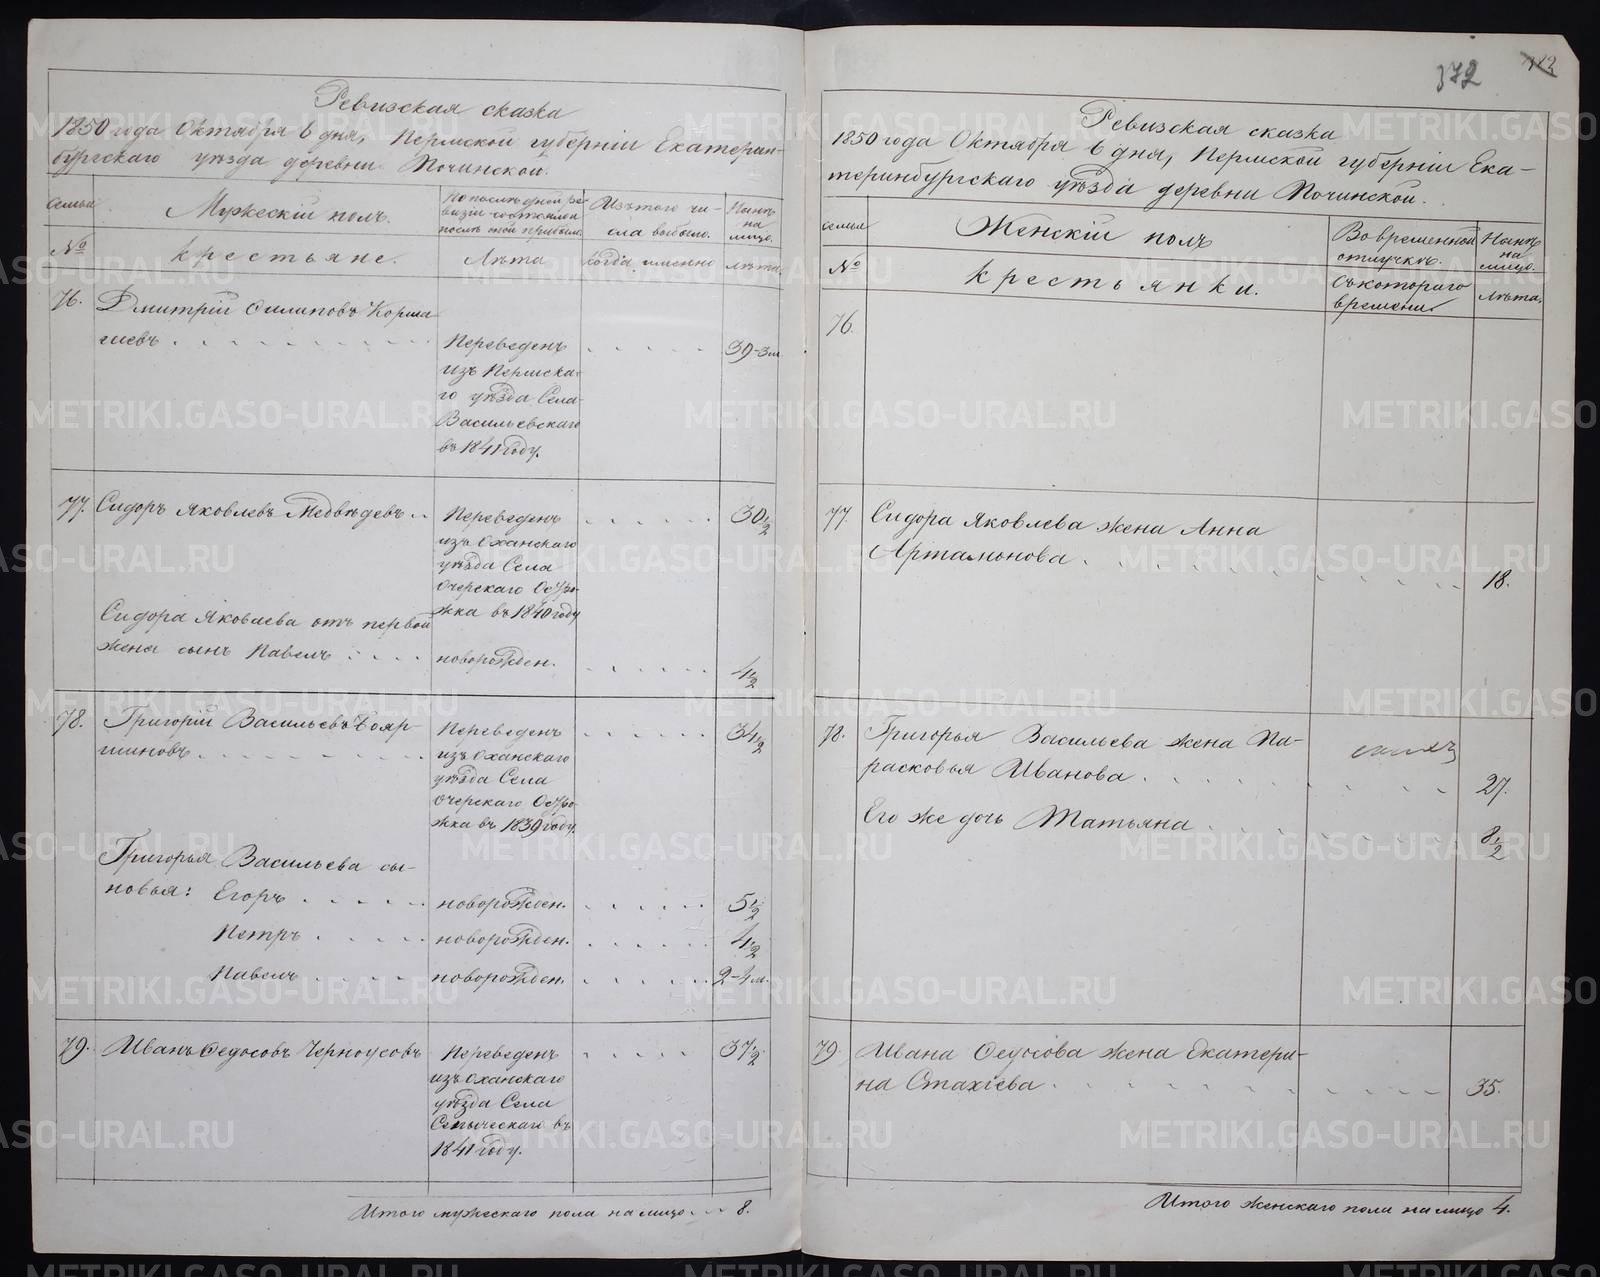 372
Ревизская сказка
1850 года Октября 6 дня, Пермской губернiи Екатерин-
бургскаго уѣзда деревни Починской.
семьи
Мужескiй полъ.
По послѣдней ре-
визiи состояло и
послѣ той прибыло.
Изъ того чи-
сла выбыло.
Нынѣ
на
лицо.
№
крестьяне.
Лѣта
Когда именно
лѣта
76.
Дмитрiй Филиповъ Корма-
гиевъ
Переведенъ
изъ Пермска-
го уѣзда Села
Васильевскаго
въ 1841 году.
39-3м.
77.
Сидоръ Яковлевъ Медвѣдевъ
Переведенъ
изъ Оханскаго
уѣзда Села
Очерскаго Остро-
жка въ 1840 году
30 1/2
Сидора Яковлева отъ первой
жены сынъ Павелъ
новорожден.
4 1/2
78.
Григорiй Васильевъ Бояр-
шиновъ
Переведенъ
изъ Оханскаго
уѣзда Села
Очерскаго Остро-
жка въ 1839 году.
34 1/2
Григорья Васильева сы-
новья: Егоръ
новорожден.
5 1/2
Петръ
новорожден.
4 1/2
Павелъ
новорожден.
2-4м.
79.
Иванъ Федосовъ Черноусовъ
Переведенъ
изъ Оханскаго
уѣзда Села
Сепыческаго въ
1841 году.
37 1/2
Итого мужескаго пола на лицо 8.
Ревизская сказка
1850 года Октября 6 дня, Пермской губернiи Ека-
теринбургскаго уѣзда деревни Починской.
семьи
Женскiй полъ
Во временной
отлучкѣ.
Нынѣ
на
лицо.
№
крестьянки.
Съ котораго
времени
Лѣта.
76.
77.
Сидора Яковлева жена Анна
Артамонова
18.
78.
Григорья Васильева жена Па-
расковья Иванова
27.
Его же дочь Татьяна
8 1/2
79.
Ивана Федосова жена Екатери-
на Стахiева
35.
Итого женскаго пола на лицо 4.
METRIKI.GASO-URAL.RU